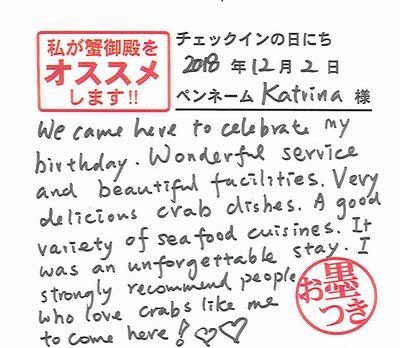 私が蟹御殿を
オススメ
します!!
チェックインの日にち
2018 年 12 月 2 日
ペンネーム Katrina 様
We came here to celebrate my
birthday. Wonderful service
and beautiful facilities. Very
delicious crab dishes. A good
variety of seafood cuisines. It
was an unforgettable stay. I
strongly recommend people
who love crabs like me
to come here! ♡♡
お墨つき